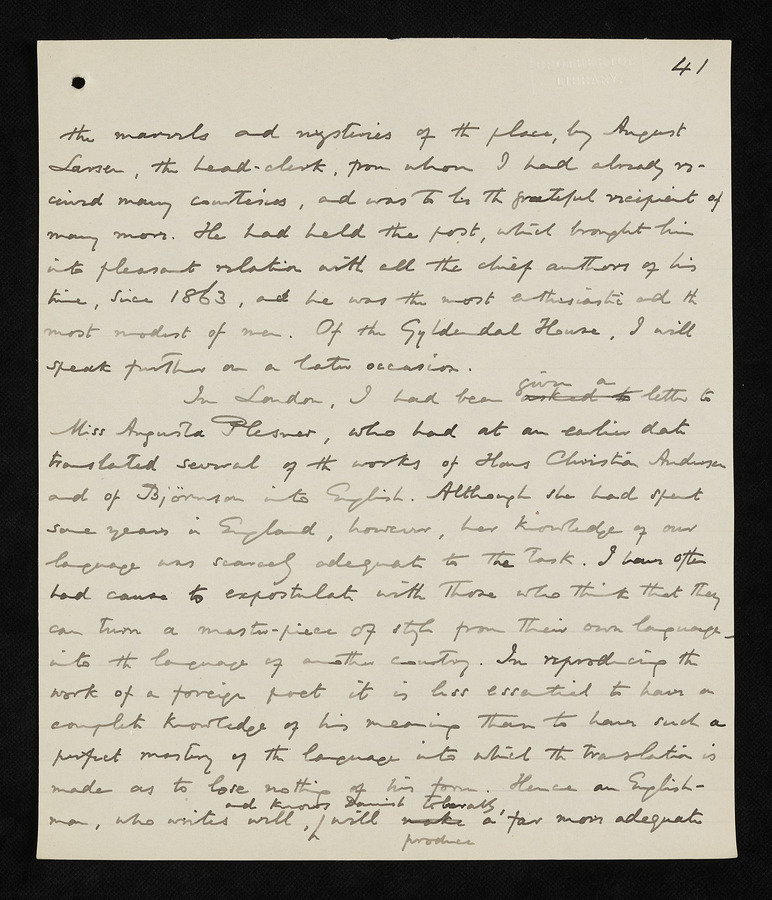 41
the marvels and mysteries of the place, by August
Larsen, the head-clerk, from whom I had already re-
ceived many courtesies, and was to be the grateful recipient of
many more. He had held the post, which brought him
into pleasant relation with all the chief authors of his
time, since 1863, and he was the most enthusiastic and the
most modest of men. Of the Gyldendal House, I will
speak further on a later occasion.
given a
In London, I had been asked to letter to
Miss Augusta Plesner, who had at an earlier date
translated several of the works of Hans Christian Andersen
and of Björnson into English. Although she had spent
some years in England, however, her knowledge of our
language was scarcely adequate to the task. I have often
had cause to expostulate with those who think that they
can turn a master-piece of style from their own language
into the language of another country. In reproducing the
work of a foreign poet it is less essential to have a
complete knowledge of his meaning than to have such a
perfect mastery of the language into which the translation is
made as to lose nothing of his form. Hence an English-
and knows Danish tolerably
man, who writes well, will make a far more adequate
produce